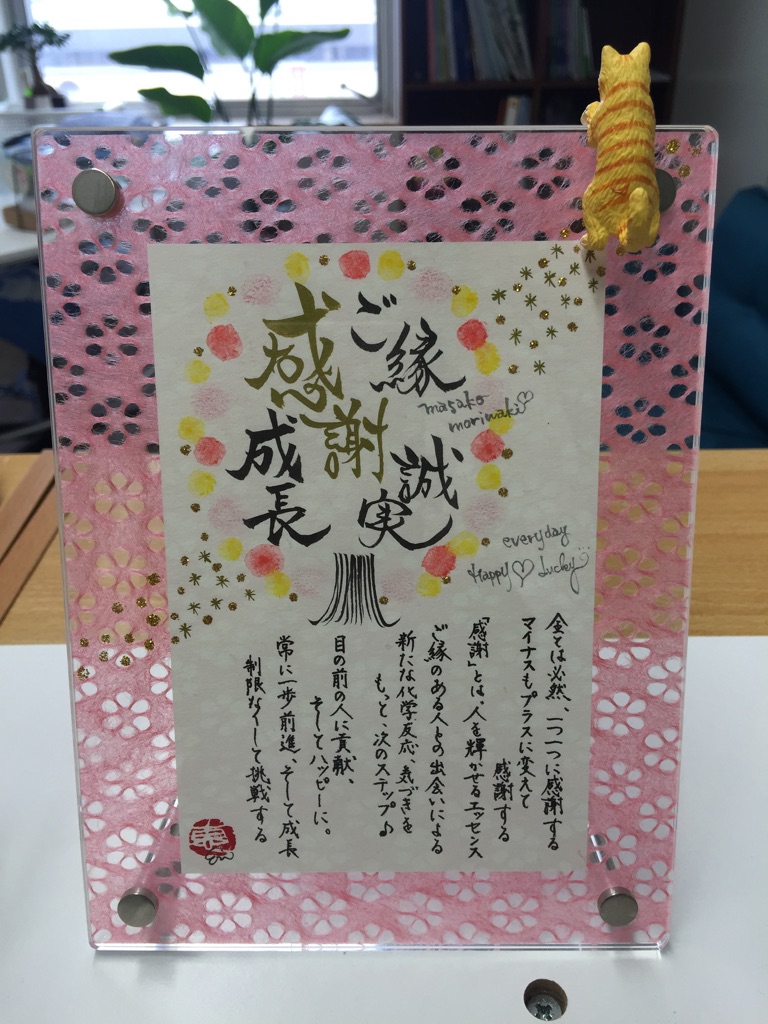 ご縁
感謝
誠実
成長
masako
moriwaki♡
everyday
Happy♡Lucky
全ては必然、一つ一つに感謝する
マイナスもプラスに変えて
感謝する
「感謝」とは、人を輝かせるエッセンス
ご縁のある人との出会いによる
新たな化学反応、気づきを
もっと、次のステップ♪
目の前の人に貢献、
そしてハッピーに。
常に一歩前進、そして成長
制限なくして挑戦する